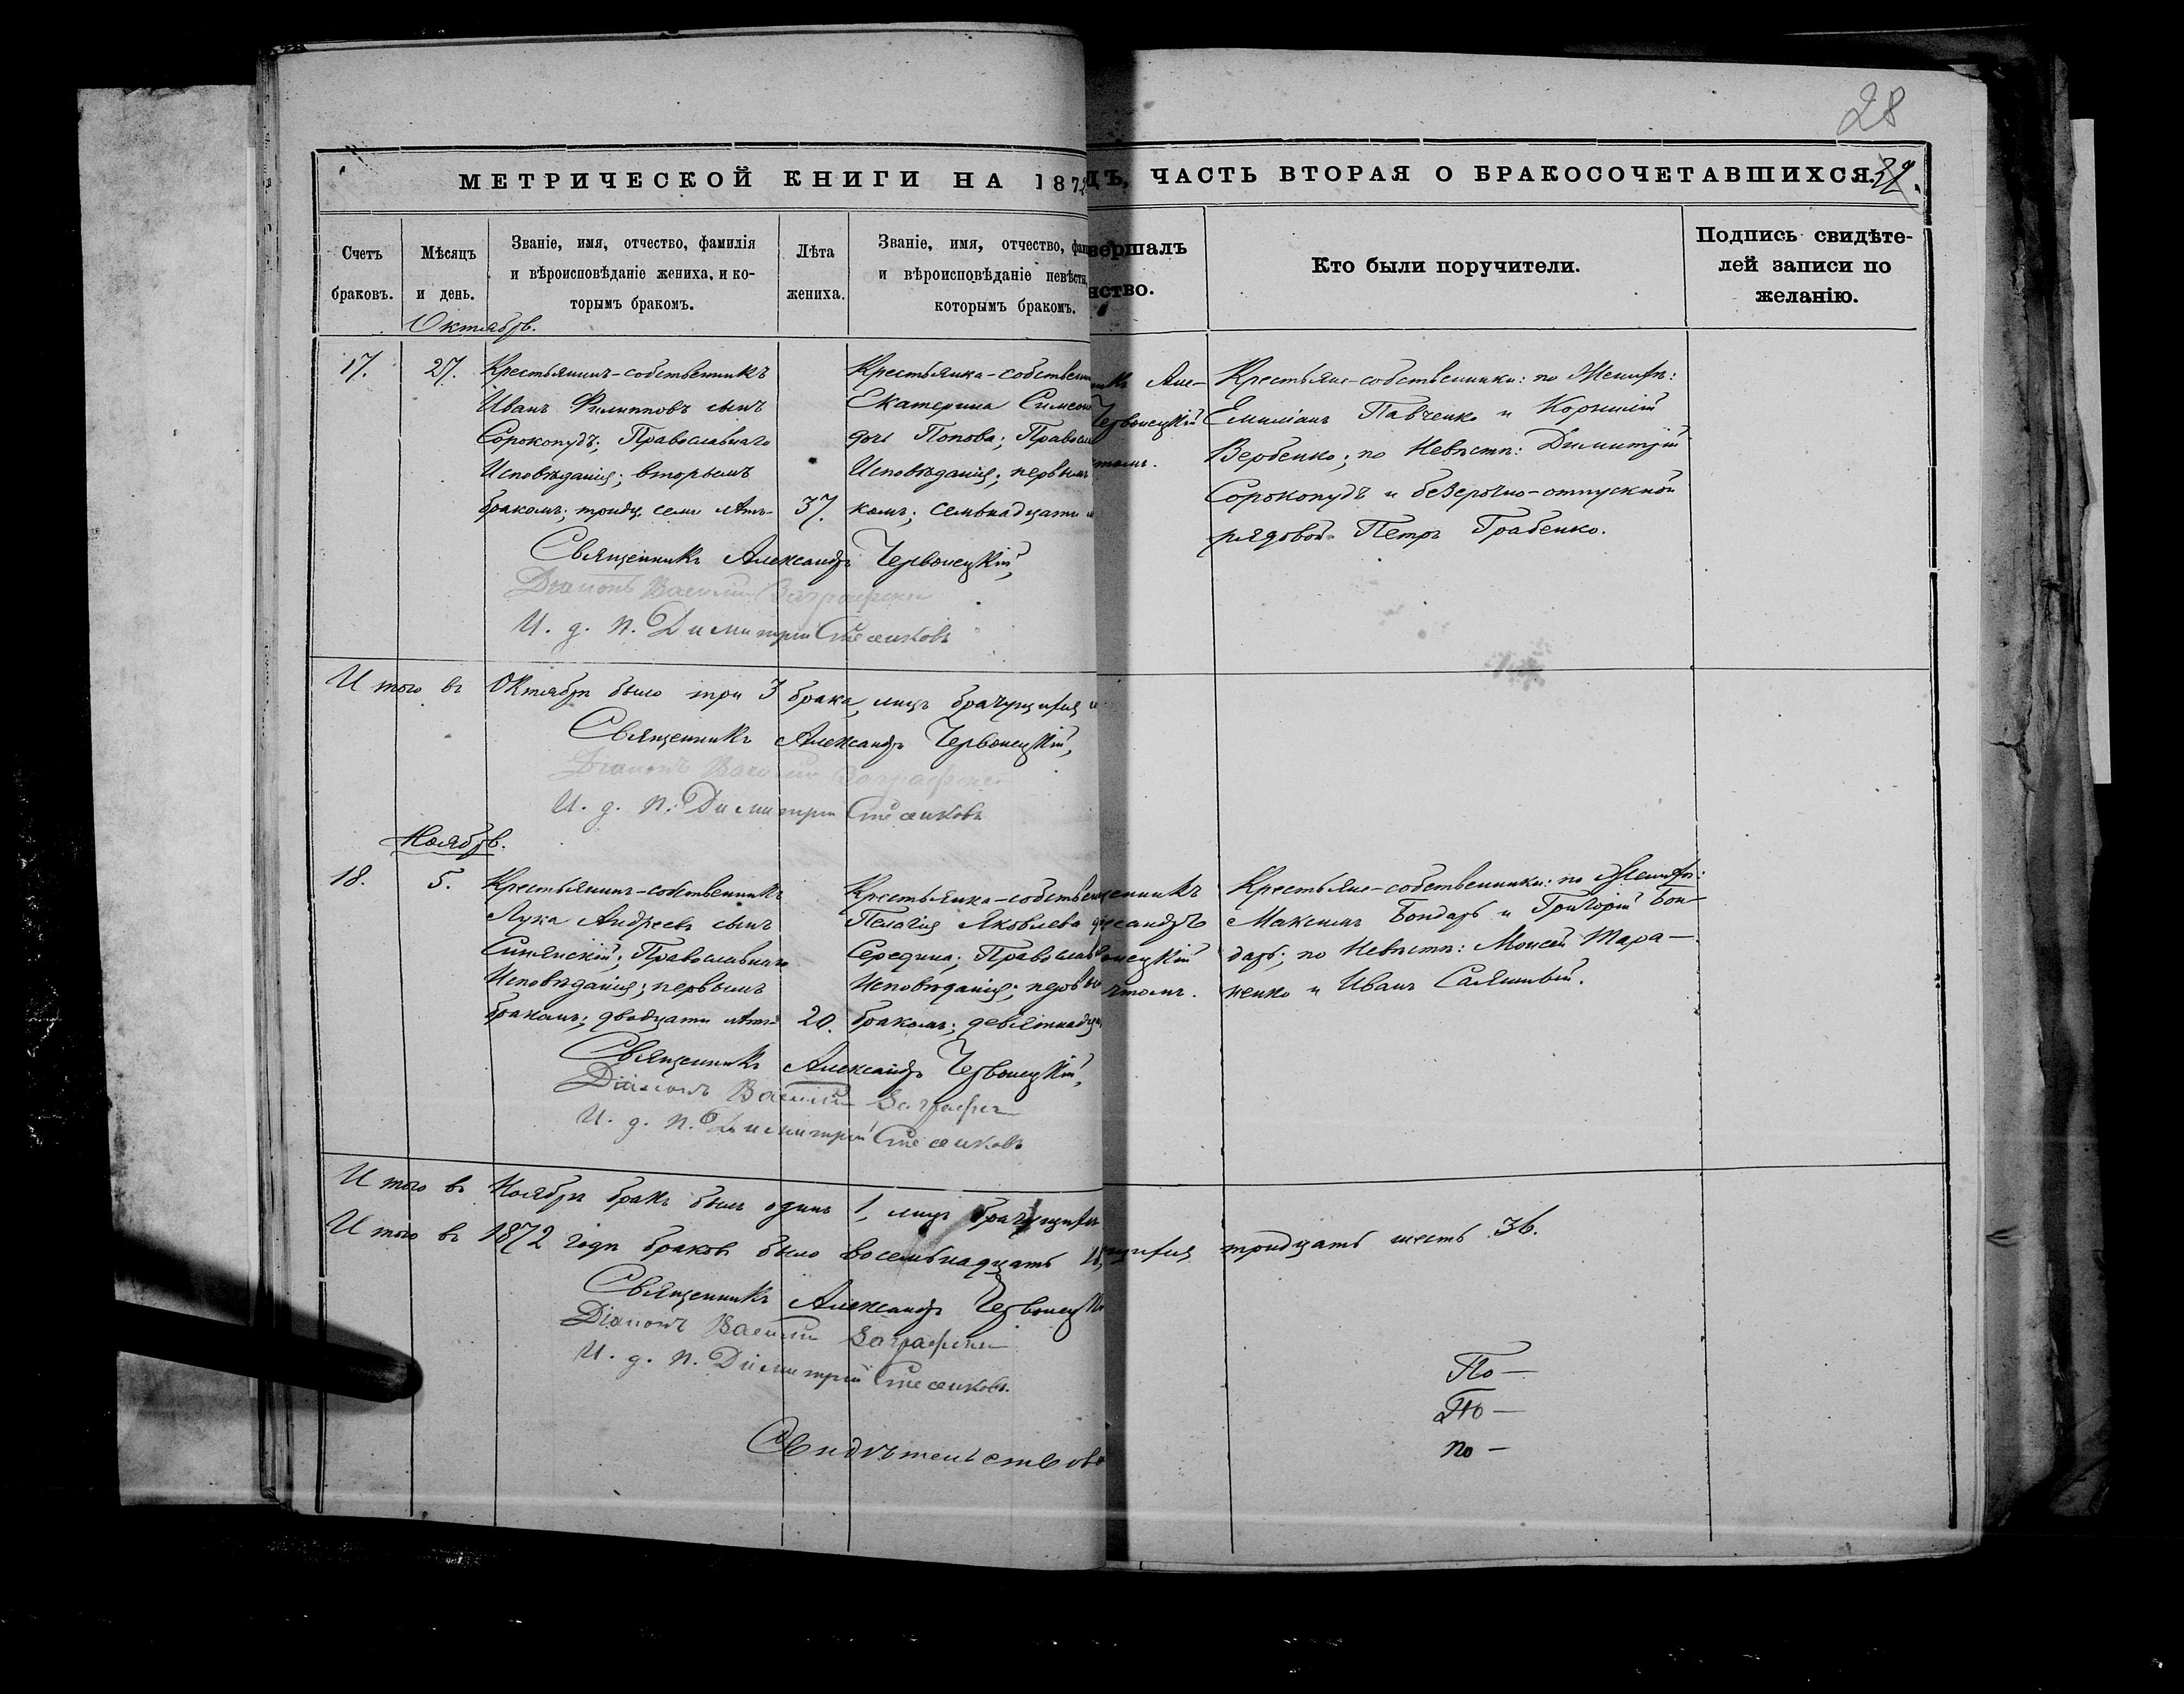 28
МЕТРИЧЕСКОЙ КНИГИ НА 1872
ДЪ, ЧАСТЬ ВТОРАЯ О БРАКОСОЧЕТАВШИХСЯ.
Счетъ браковъ.
Мѣсяцъ и день.
Званіе, имя, отчество, фамилія
и вѣроисповѣданіе жениха, и ко-
торымъ бракомъ.
Лѣта жениха.
Званіе, имя, отчество, фам
и вѣроисповѣданіе невѣсты,
которымъ бракомъ.
вершалъ
нство.
Кто были поручители.
Подпись свидѣте-
лей записи по
желанію.
Октябрь.
17. 27. Крестьянинъ-собственникъ
Иванъ Филипповъ сынъ
Сорокопудъ; Православнаго
Исповѣданія; вторымъ
бракомъ; тридц. семи лѣтъ 37.
Крестьянка-собствен
Екатерина Симеон
дочь Попова; Правосл
Исповѣданія; первымъ
комъ; семьнадцати
Але-
Червонецкій
Крестьяне-собственники: по Женихѣ:
Емиліанъ Павченко и Корнилій
Вербенко; по Невѣстѣ: Димитрій
Сорокопудъ и безсрочно-отпускной
рядовой Петръ Грабенко.
Священникъ Александръ Червонецкій,
Діаконъ Василій
И. д. п. Димитрій
Итого въ Октябрѣ было три 3 брака, лицъ брачущихся
Священникъ Александръ Червонецкій,
Діаконъ Василій
И. д. п. Димитрій
Ноябрь.
18. 5. Крестьянинъ-собственникъ
Лука Андреевъ сынъ
Синянскій; Православнаго
Исповѣданія; первымъ
бракомъ; двадцати лѣтъ 20.
Крестьянка-собствен
Пелагія Яковлева
Середина; Православ
Исповѣданія; первы
бракомъ; девятнадца
щенникъ
ександръ
онецкій
Крестьяне-собственники: по Женихѣ:
Максимъ Бондарь и Григорій Бон-
дарь; по Невѣстѣ: Моисей Тара-
ненко и Иванъ
Священникъ Александръ Червонецкій,
Діаконъ Василій
И. д. п. Димитрій
Итого въ Ноябрѣ бракъ былъ одинъ 1, лицъ брачущихся
Итого въ 1872 годѣ браковъ было восемьнадцать 18,
щихся тридцать шесть 36.
Священникъ Александръ Червонецкі
Діаконъ Василій
И. д. п. Димитрій
По —
По —
по —
Свидѣтельствова